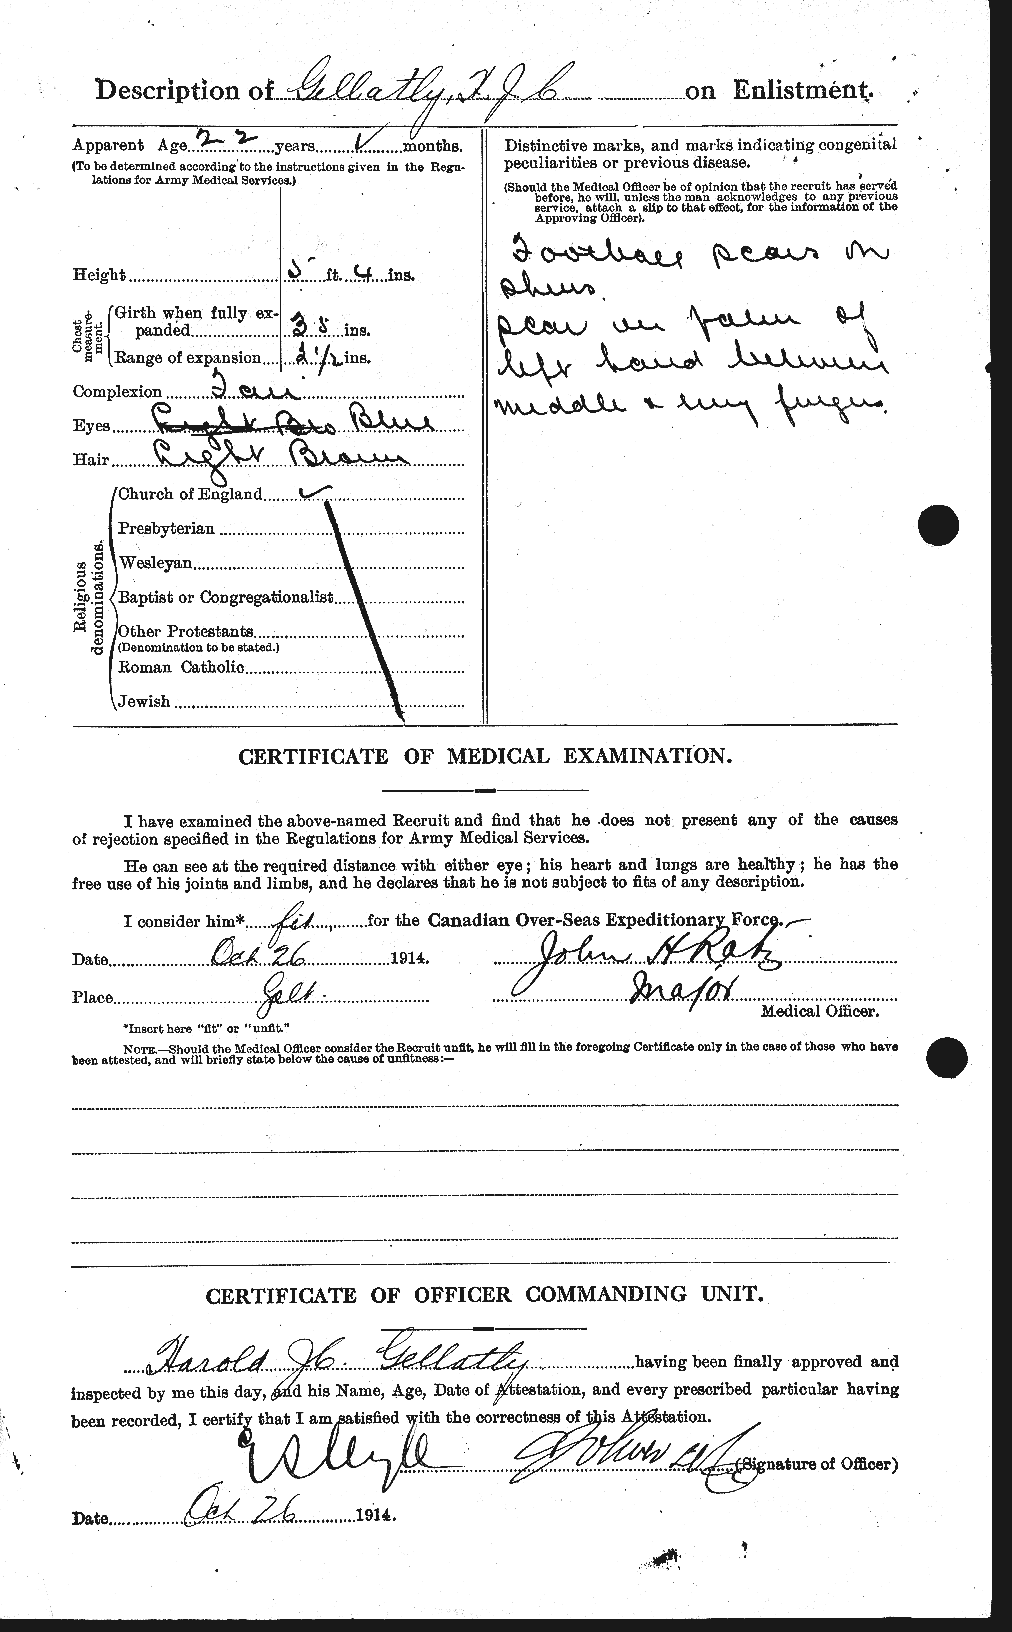 Description of Gellatly, H. J. C. on Enlistment.
Apparent Age 22 years ✓ months.
(To be determined according to the instructions given in the Regu-
lations for Army Medical Services.)
Height 5 ft. 4 ins.
Chest
measure-
ment.
Girth when fully ex-
panded 35 ins.
Range of expansion 2 1/2 ins.
Complexion Fair
Eyes Light Bro Blue
Hair Light Brown
Religious
denominations.
Church of England ✓
Presbyterian
Wesleyan
Baptist or Congregationalist
Other Protestants
(Denomination to be stated.)
Roman Catholic
Jewish
Distinctive marks, and marks indicating congenital
peculiarities or previous disease.
(Should the Medical Officer be of opinion that the recruit has served
before, he will, unless the man acknowledges to any previous
service, attach a slip to that effect, for the information of the
Approving Officer).
Football scars on
shins.
scar on palm of
left hand between
middle & ring fingers.
CERTIFICATE OF MEDICAL EXAMINATION.
I have examined the above-named Recruit and find that he does not present any of the causes
of rejection specified in the Regulations for Army Medical Services.
He can see at the required distance with either eye; his heart and lungs are healthy; he has the
free use of his joints and limbs, and he declares that he is not subject to fits of any description.
I consider him* fit for the Canadian Over-Seas Expeditionary Force.
Date Oct 26 1914. John H Ratz
Place Galt. Major
Medical Officer.
*Insert here "fit" or "unfit."
NOTE.—Should the Medical Officer consider the Recruit unfit, he will fill in the foregoing Certificate only in the case of those who have
been attested, and will briefly state below the cause of unfitness:—
CERTIFICATE OF OFFICER COMMANDING UNIT.
Harold J C. Gellatly having been finally approved and
inspected by me this day, and his Name, Age, Date of Attestation, and every prescribed particular having
been recorded, I certify that I am satisfied with the correctness of this Attestation.
(Signature of Officer)
Date Oct 26 1914.